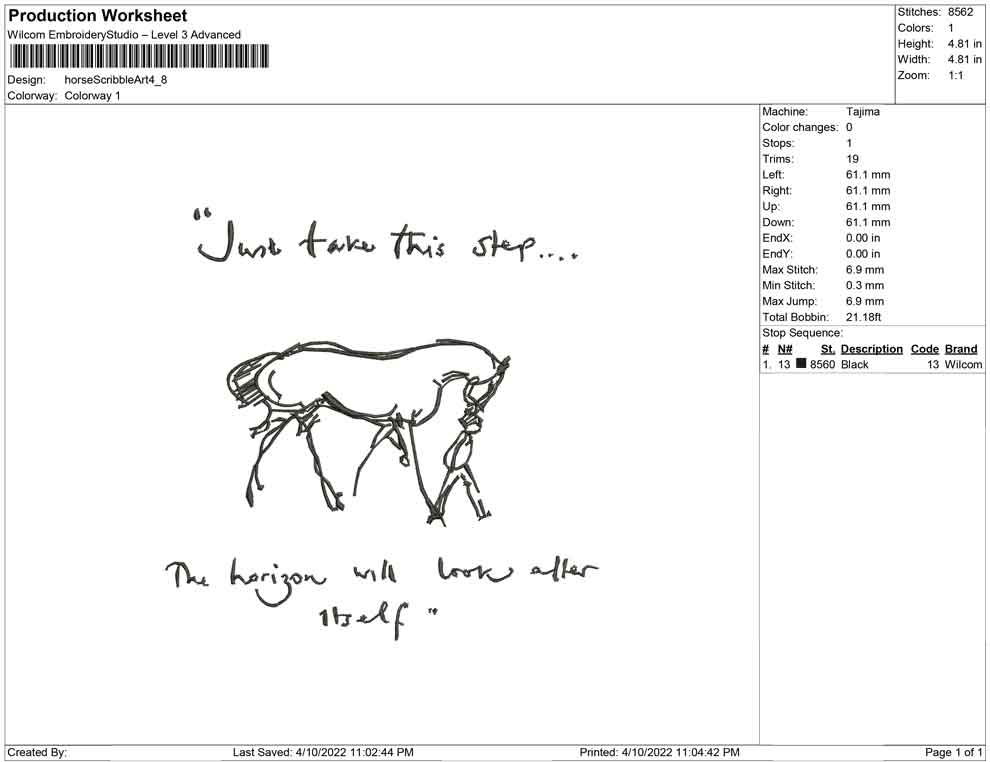 Production Worksheet
Wilcom EmbroideryStudio – Level 3 Advanced
Design: horseScribbleArt4_8
Colorway: Colorway 1
Stitches: 8562
Colors: 1
Height: 4.81 in
Width: 4.81 in
Zoom: 1:1
"Just take this step....
The horizon will look after
itself"
Machine: Tajima
Color changes: 0
Stops: 1
Trims: 19
Left: 61.1 mm
Right: 61.1 mm
Up: 61.1 mm
Down: 61.1 mm
EndX: 0.00 in
EndY: 0.00 in
Max Stitch: 6.9 mm
Min Stitch: 0.3 mm
Max Jump: 6.9 mm
Total Bobbin: 21.18ft
Stop Sequence:
# N# St. Description Code Brand
1. 13 8560 Black 13 Wilcom
Created By: Last Saved: 4/10/2022 11:02:44 PM Printed: 4/10/2022 11:04:42 PM Page 1 of 1